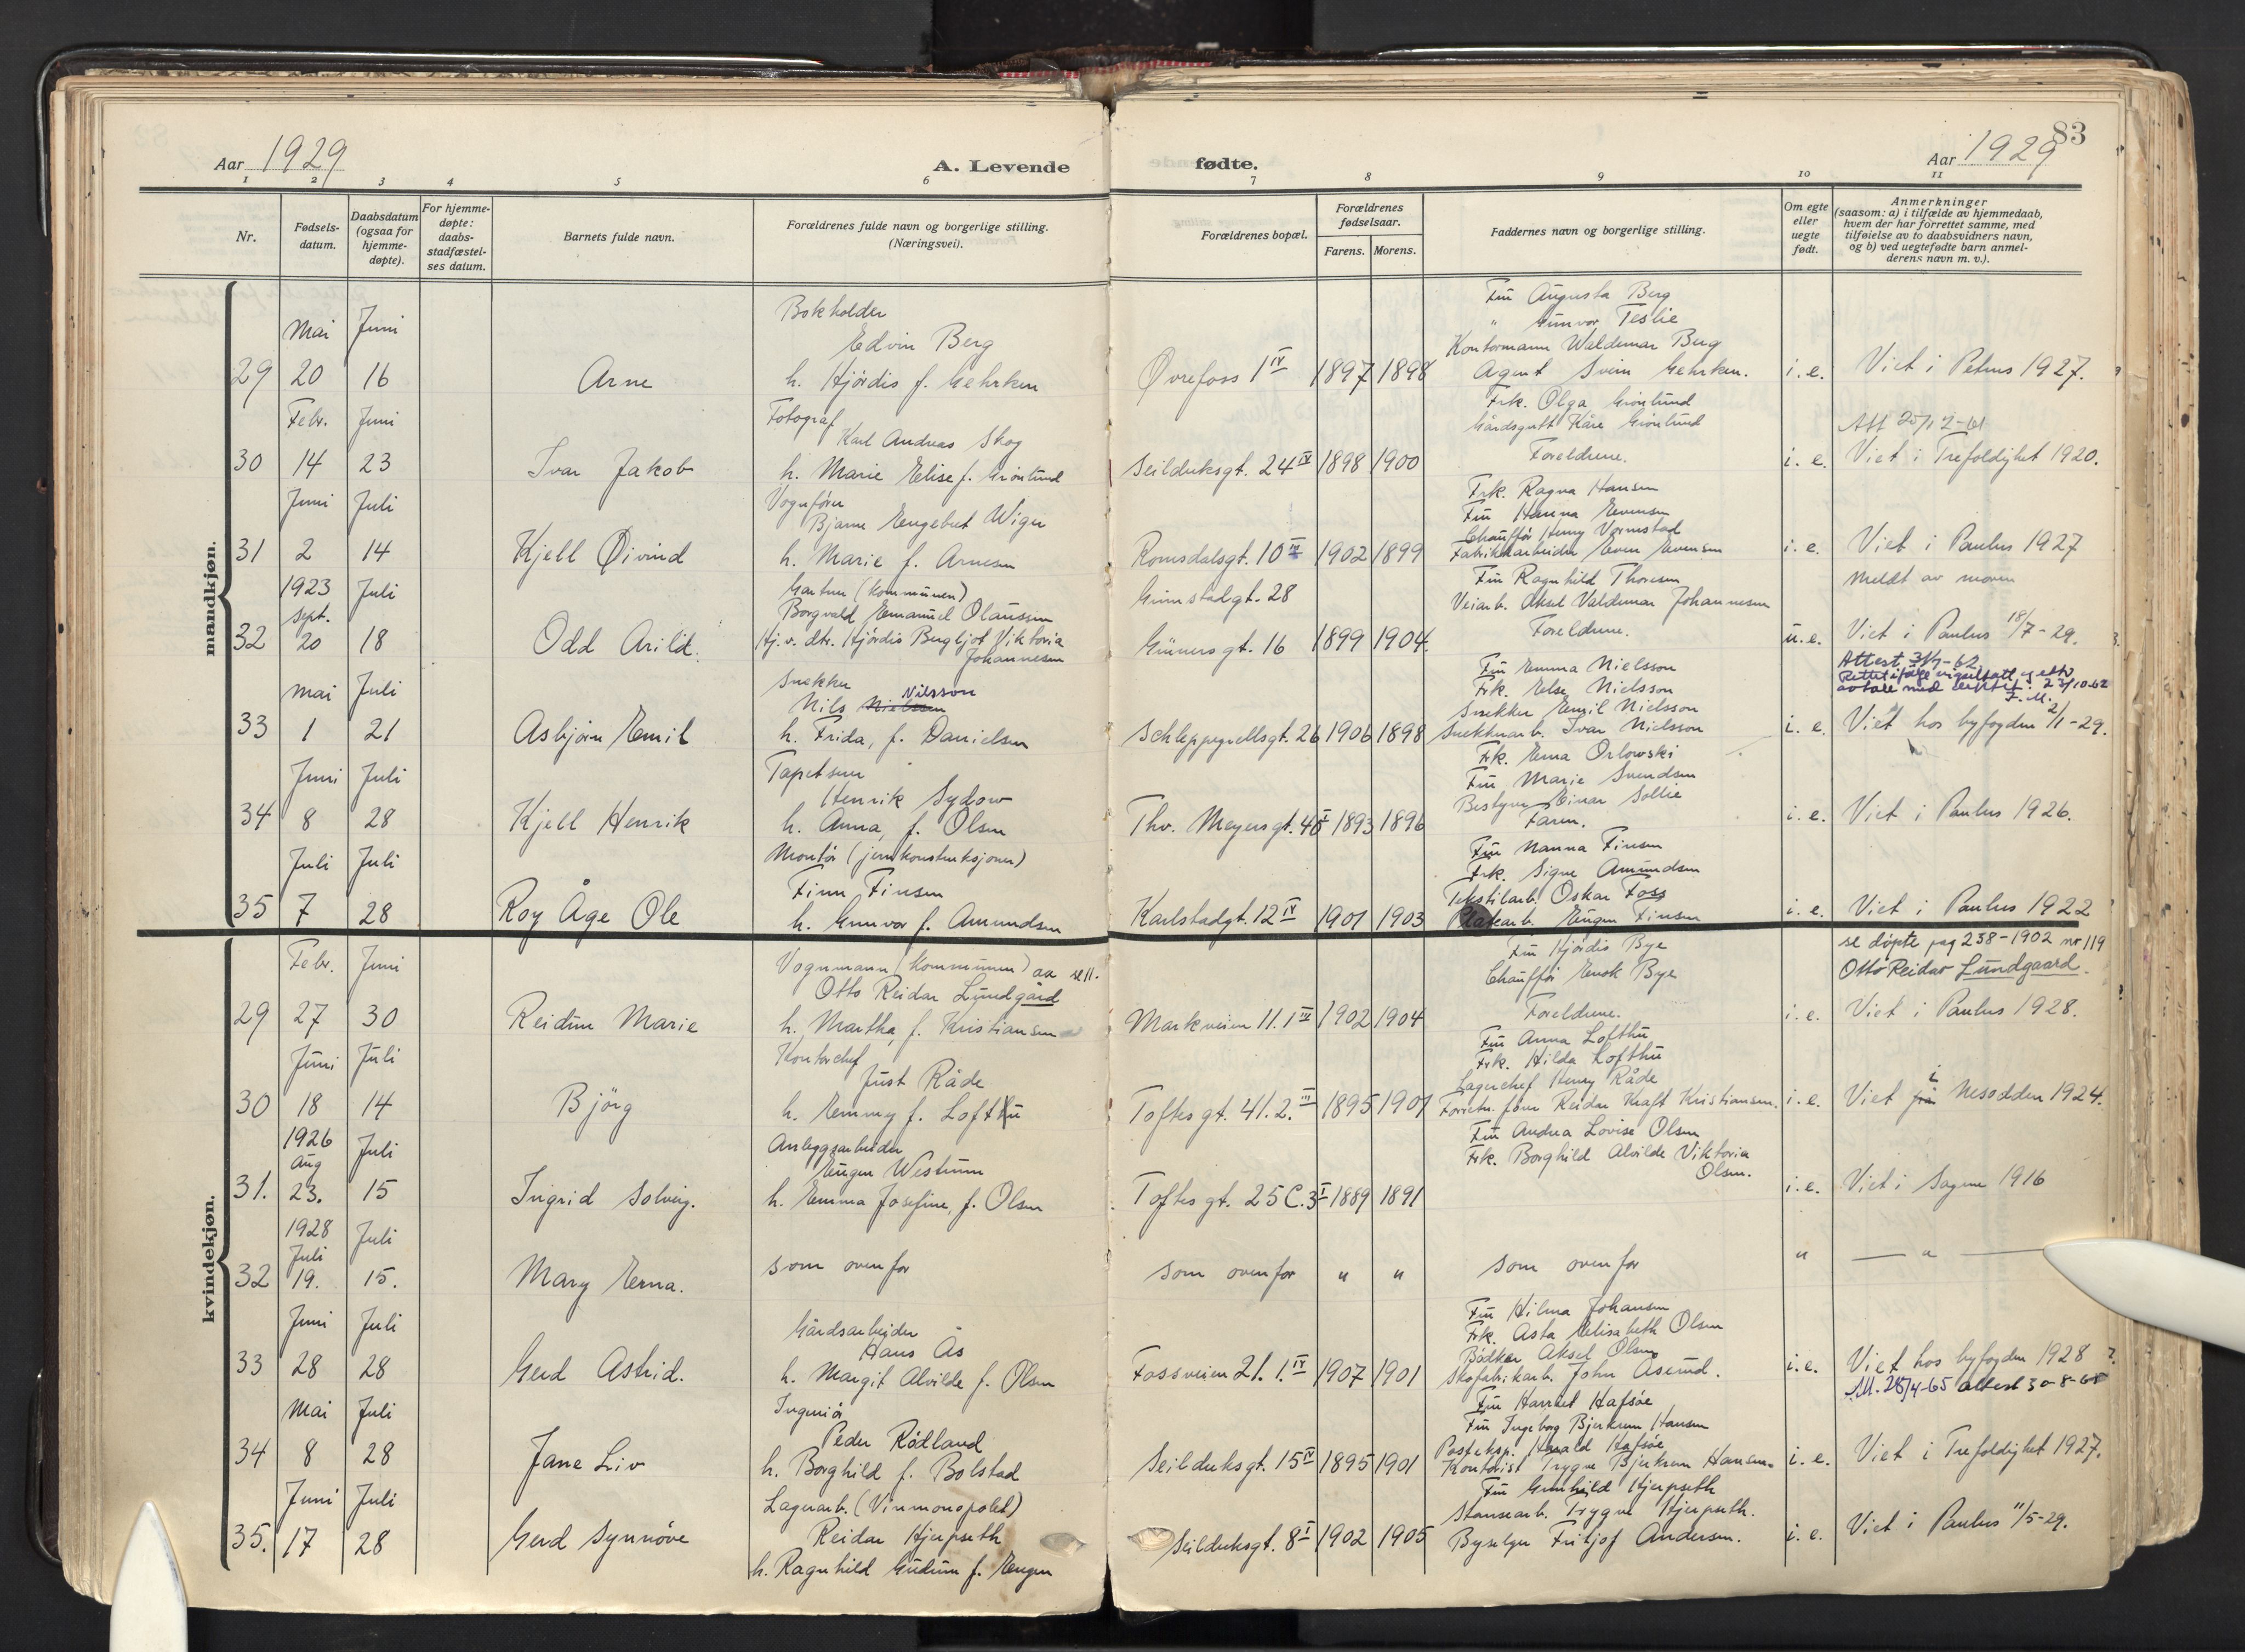 83
Aar 1929
A. Levende
fødte.
Aar 1929
1 2 3 4 5 6 7 8 9 10 11
Nr.
Fødsels-
datum.
Daabsdatum
(ogsaa for
hjemme-
døpte).
For hjemme-
døpte:
daabs-
stadfæstel-
ses datum.
Barnets fulde navn.
Forældrenes fulde navn og borgerlige stilling.
(Næringsvei).
Forældrenes bopæl.
Forældrenes
fødselsaar.
Farens. Morens.
Faddernes navn og borgerlige stilling.
Om egte
eller
uegte
født.
Anmerkninger
(saasom: a) i tilfælde av hjemmedaab,
hvem der har forrettet samme, med
tilføielse av to daabsvidners navn,
og b) ved uegtefødte barn anmel-
derens navn m. v.).
mandkjøn.
29
Mai
20
Juni
16
Arne
Bokholder
Edvin Berg
h. Hjördis f. Gehrken
Øvrefoss 1 IV
1897 1898
Fru Augusta Berg
" Gunvor Teslie
Kontormann Waldemar Berg
Agent Svein Gehrken.
i. e.
Viet i Petrus 1927.
30
Febr.
14
Juni
23
Ivar Jakob
Fotograf
Karl Andreas Skog
h. Marie Elise f. Grönlund
Seilduksgt. 24 IV
1898 1900
Frk. Olga Grönlund
Gårdsgutt Kåre Grönlund
Foreldrene.
i. e.
Att 20/12-61
Viet i Trefoldighet 1920.
31
Juni
2
Juli
14
Kjell Øivind
Vognfører
Bjarne Engebret Wiger
h. Marie f. Arnesen
Romsdalsgt. 10 IV
1902 1899
Frk. Ragna Hansen
Fru Hanna Evensen
Chauffør Henry Vormstad
Fabrikkarbeider Even Evensen
i. e.
Viet i Paulus 1927
32
1923
Sept.
20
Juli
18
Odd Arild.
Gartner (kommunen)
Borgvald Emanuel Olaussen
Hj.v. dtr. Hjördis Bergljot Viktoria
Johannesen
Grimstadgt. 28
Grünersgt. 16
1899 1904.
Fru Ragnhild Thoresen
Veiarb. Aksel Valdemar Johannesen
Foreldrene.
u. e.
Meldt av moren
Viet i Paulus 18/7-29.
33
Mai
1
Juli
21
Asbjörn Emil
Snekker
Nils Nielssen Nilsson
h. Frida, f. Danielsen
Schleppegrellsgt. 26
1906 1898
Fru Emma Nielsson
Frk. Else Nielsson
Snekker Emil Nielsson
Snekkerarb. Ivar Nielsson
i. e.
Attest 31/7-62
Rettet ifølge vigselsatt. og etter
avtale med 23/10-62
Viet hos byfogden 2/1-29.
34
Juni
8
Juli
28
Kjell Henrik
Tapetserer
Henrik Sydow
h. Anna, f. Olsen
Thv. Meyersgt. 48 I
1893 1896
Frk. Erna Orlowski
Fru Marie Svendsen
Bestyrer Einar Sollie
Faren.
i. e.
Viet i Paulus 1926.
35
Juli
7
Juli
28
Roy Åge Ole
Montör (jernkonstruksjoner)
Finn Finsen
h. Gunvor f. Amundsen
Karlstadgt. 12 IV
1901 1903
Fru Nanna Finsen
Frk. Signe Amundsen
Tekstilarb. Oskar Foss
Platearb. Eugen Finsen
i. e.
Viet i Paulus 1922
kvindekjøn.
29
Febr.
27
Juni
30
Reidun Marie
Vognmann (kommunen) aa se 11.
Otto Reidar Lundgård
h. Martha, f. Kristiansen
Markveien 11. 1 IV
1902 1904
Fru Hjördis Bye
Chauffør Enok Bye
Foreldrene.
i. e.
se döpte pag 238-1902 nr 119
Otto Reidar Lundgaard.
Viet i Paulus 1928.
30
Juni
18
Juli
14
Björg
Kontorchef
Just Råde
h. Emmy f. Lofthu
Toftes gt. 41. 2. III
1895 1901
Fru Anna Lofthu
Frk. Hilda Lofthu
Lagerchef Henry Råde
Forretn. fører Reidar Kraft Kristiansen.
i. e.
Viet på i Nesodden 1924.
31.
1926
Aug
23.
Juli
15
Ingrid Solveig.
Anleggsarbeider
Eugen Westrum
h. Emma Josefine, f. Olsen
Toftes gt. 25 C. 3 I
1889 1891
Fru Andrea Lovise Olsen
Frk. Borghild Alvilde Viktoria
Olsen.
i. e.
Viet i Sagene 1916
32
1928
Juli
19.
Juli
15.
Mary Erna.
som ovenfor
som ovenfor
" "
som ovenfor
"
— " —
33
Juni
28
Juli
28
Gerd Astrid.
Gårdsarbeider
Hans Ås
h. Margit Alvilde f. Olsen
Fossveien 21. 1. IV
1907 1901
Fru Hilma Johansen
Frk. Asta Elisabeth Olsen
Bödker Aksel Olsen
Skofabrikarb. John Åserud.
i. e.
Viet hos byfogden 1928
Att. 28/4-65 attest 30-8-65
34
Mai
8
Juli
28
Jane Liv
Ingeniör
Peder Rödland
h. Borghild f. Bolstad
Seilduksgt. 15 IV
1895 1901
Fru Harriet Hafsöe
Fru Ingeborg Bjerkrem Hansen
Posteksp. Harald Hafsöe
Kontorist Trygve Bjerkrem Hansen.
i. e.
Viet i Trefoldighet 1927.
35.
Juni
17
Juli
28
Gerd Synnöve
Lagerarb. (Vinmonopolet)
Reidar Hjerpseth
h. Ragnhild Gudrun f. Engen
Seilduksgt. 8 I
1902 1905
Fru Gunhild Hjerpseth
Stansearb. Trygve Hjerpseth.
Byselger Fritjof Andersen.
i. e.
Viet i Paulus 11/5-29.